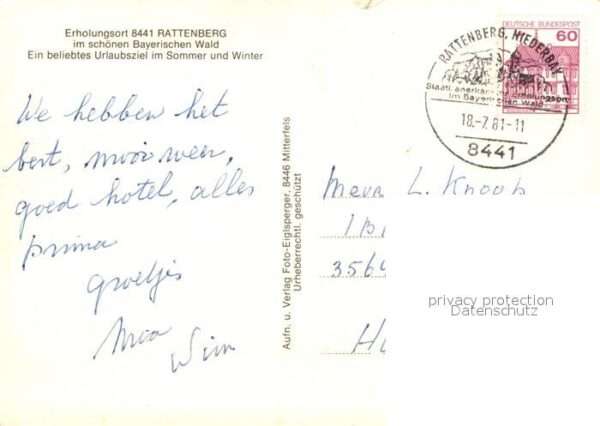 Erholungsort 8441 RATTENBERG
im schönen Bayerischen Wald
Ein beliebtes Urlaubsziel im Sommer und Winter
We hebben het
best, mooi weer,
goed hotel, alles
prima
Groetjes
Wim
Aufn. u. Verlag Foto-Eiglsperger, 8446 Mitterfels
Urheberrechtl. geschützt
DEUTSCHE BUNDESPOST
60
RATTENBERG, NIEDERBAY
Staatl. anerkannter Erholungsort
im Bayerischen Wald
18.-7.81-11
8441
Mevr L. Knoob
1 B
356
H
privacy protection
Datenschutz